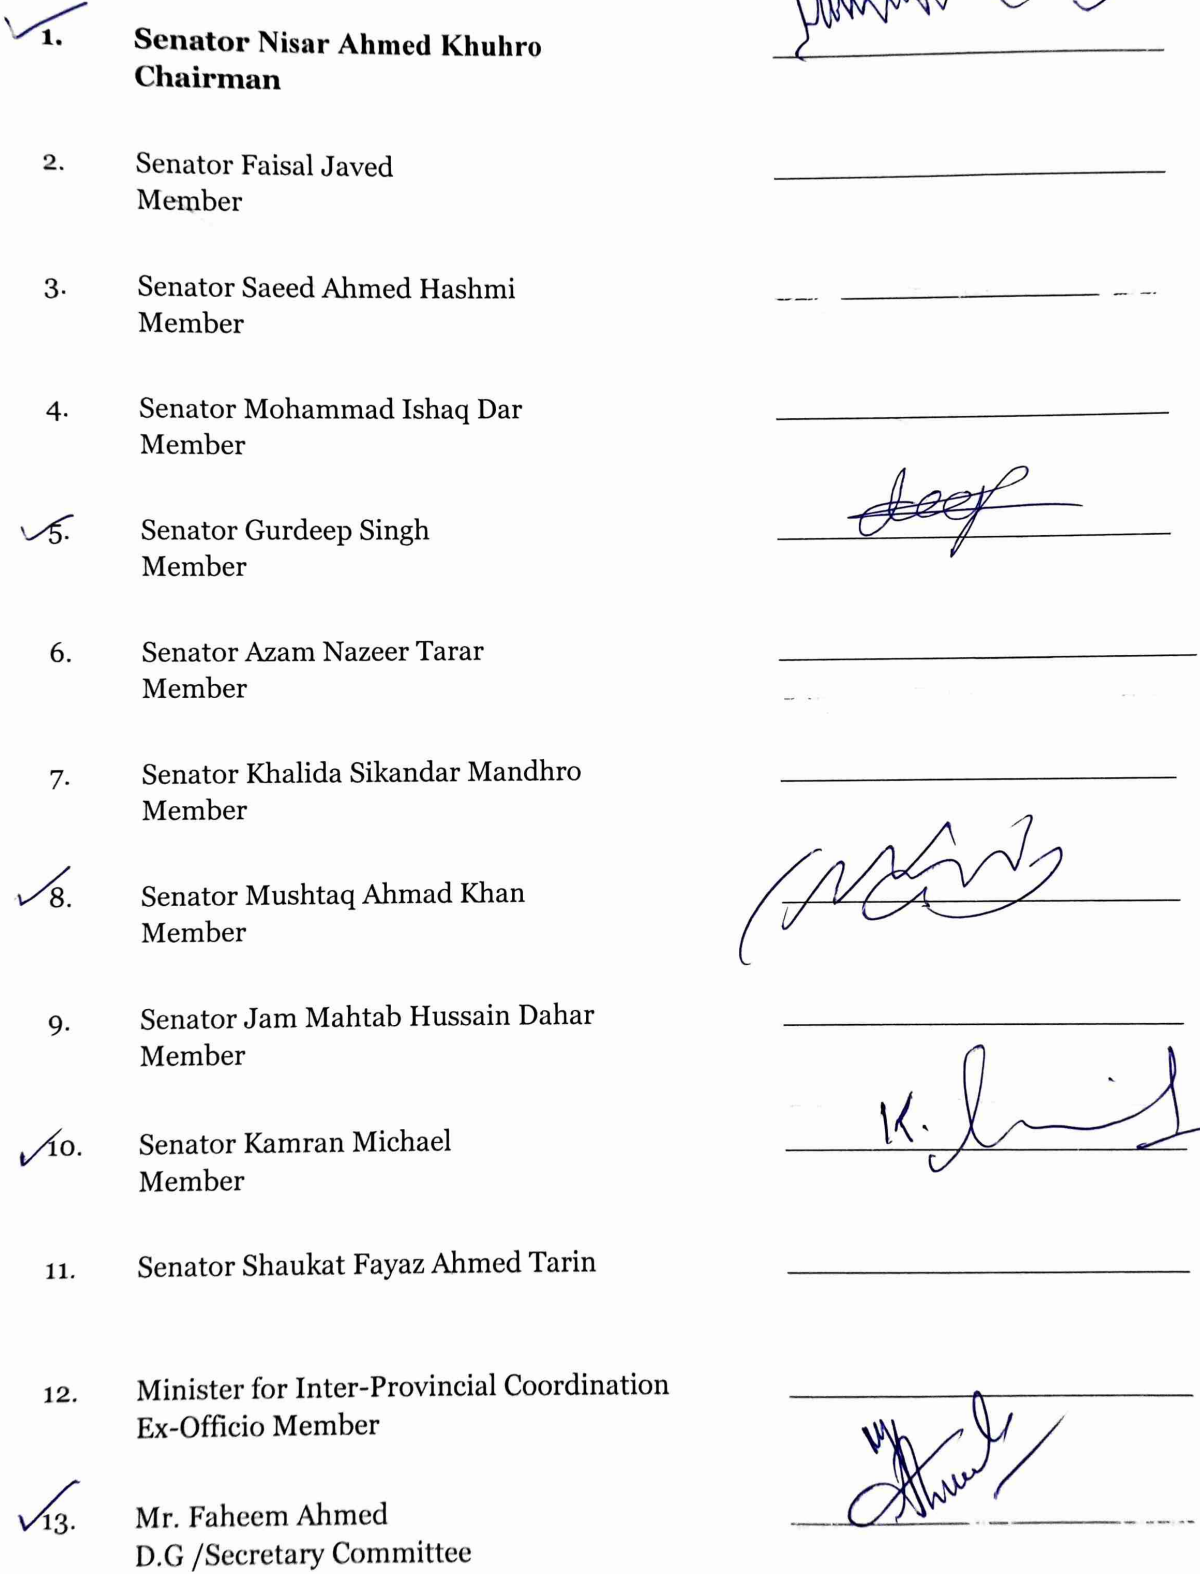 1. Senator Nisar Ahmed Khuhro
Chairman
2. Senator Faisal Javed
Member
3. Senator Saeed Ahmed Hashmi
Member
4. Senator Mohammad Ishaq Dar
Member
5. Senator Gurdeep Singh
Member
6. Senator Azam Nazeer Tarar
Member
7. Senator Khalida Sikandar Mandhro
Member
8. Senator Mushtaq Ahmad Khan
Member
9. Senator Jam Mahtab Hussain Dahar
Member
10. Senator Kamran Michael
Member
11. Senator Shaukat Fayaz Ahmed Tarin
12. Minister for Inter-Provincial Coordination
Ex-Officio Member
13. Mr. Faheem Ahmed
D.G /Secretary Committee